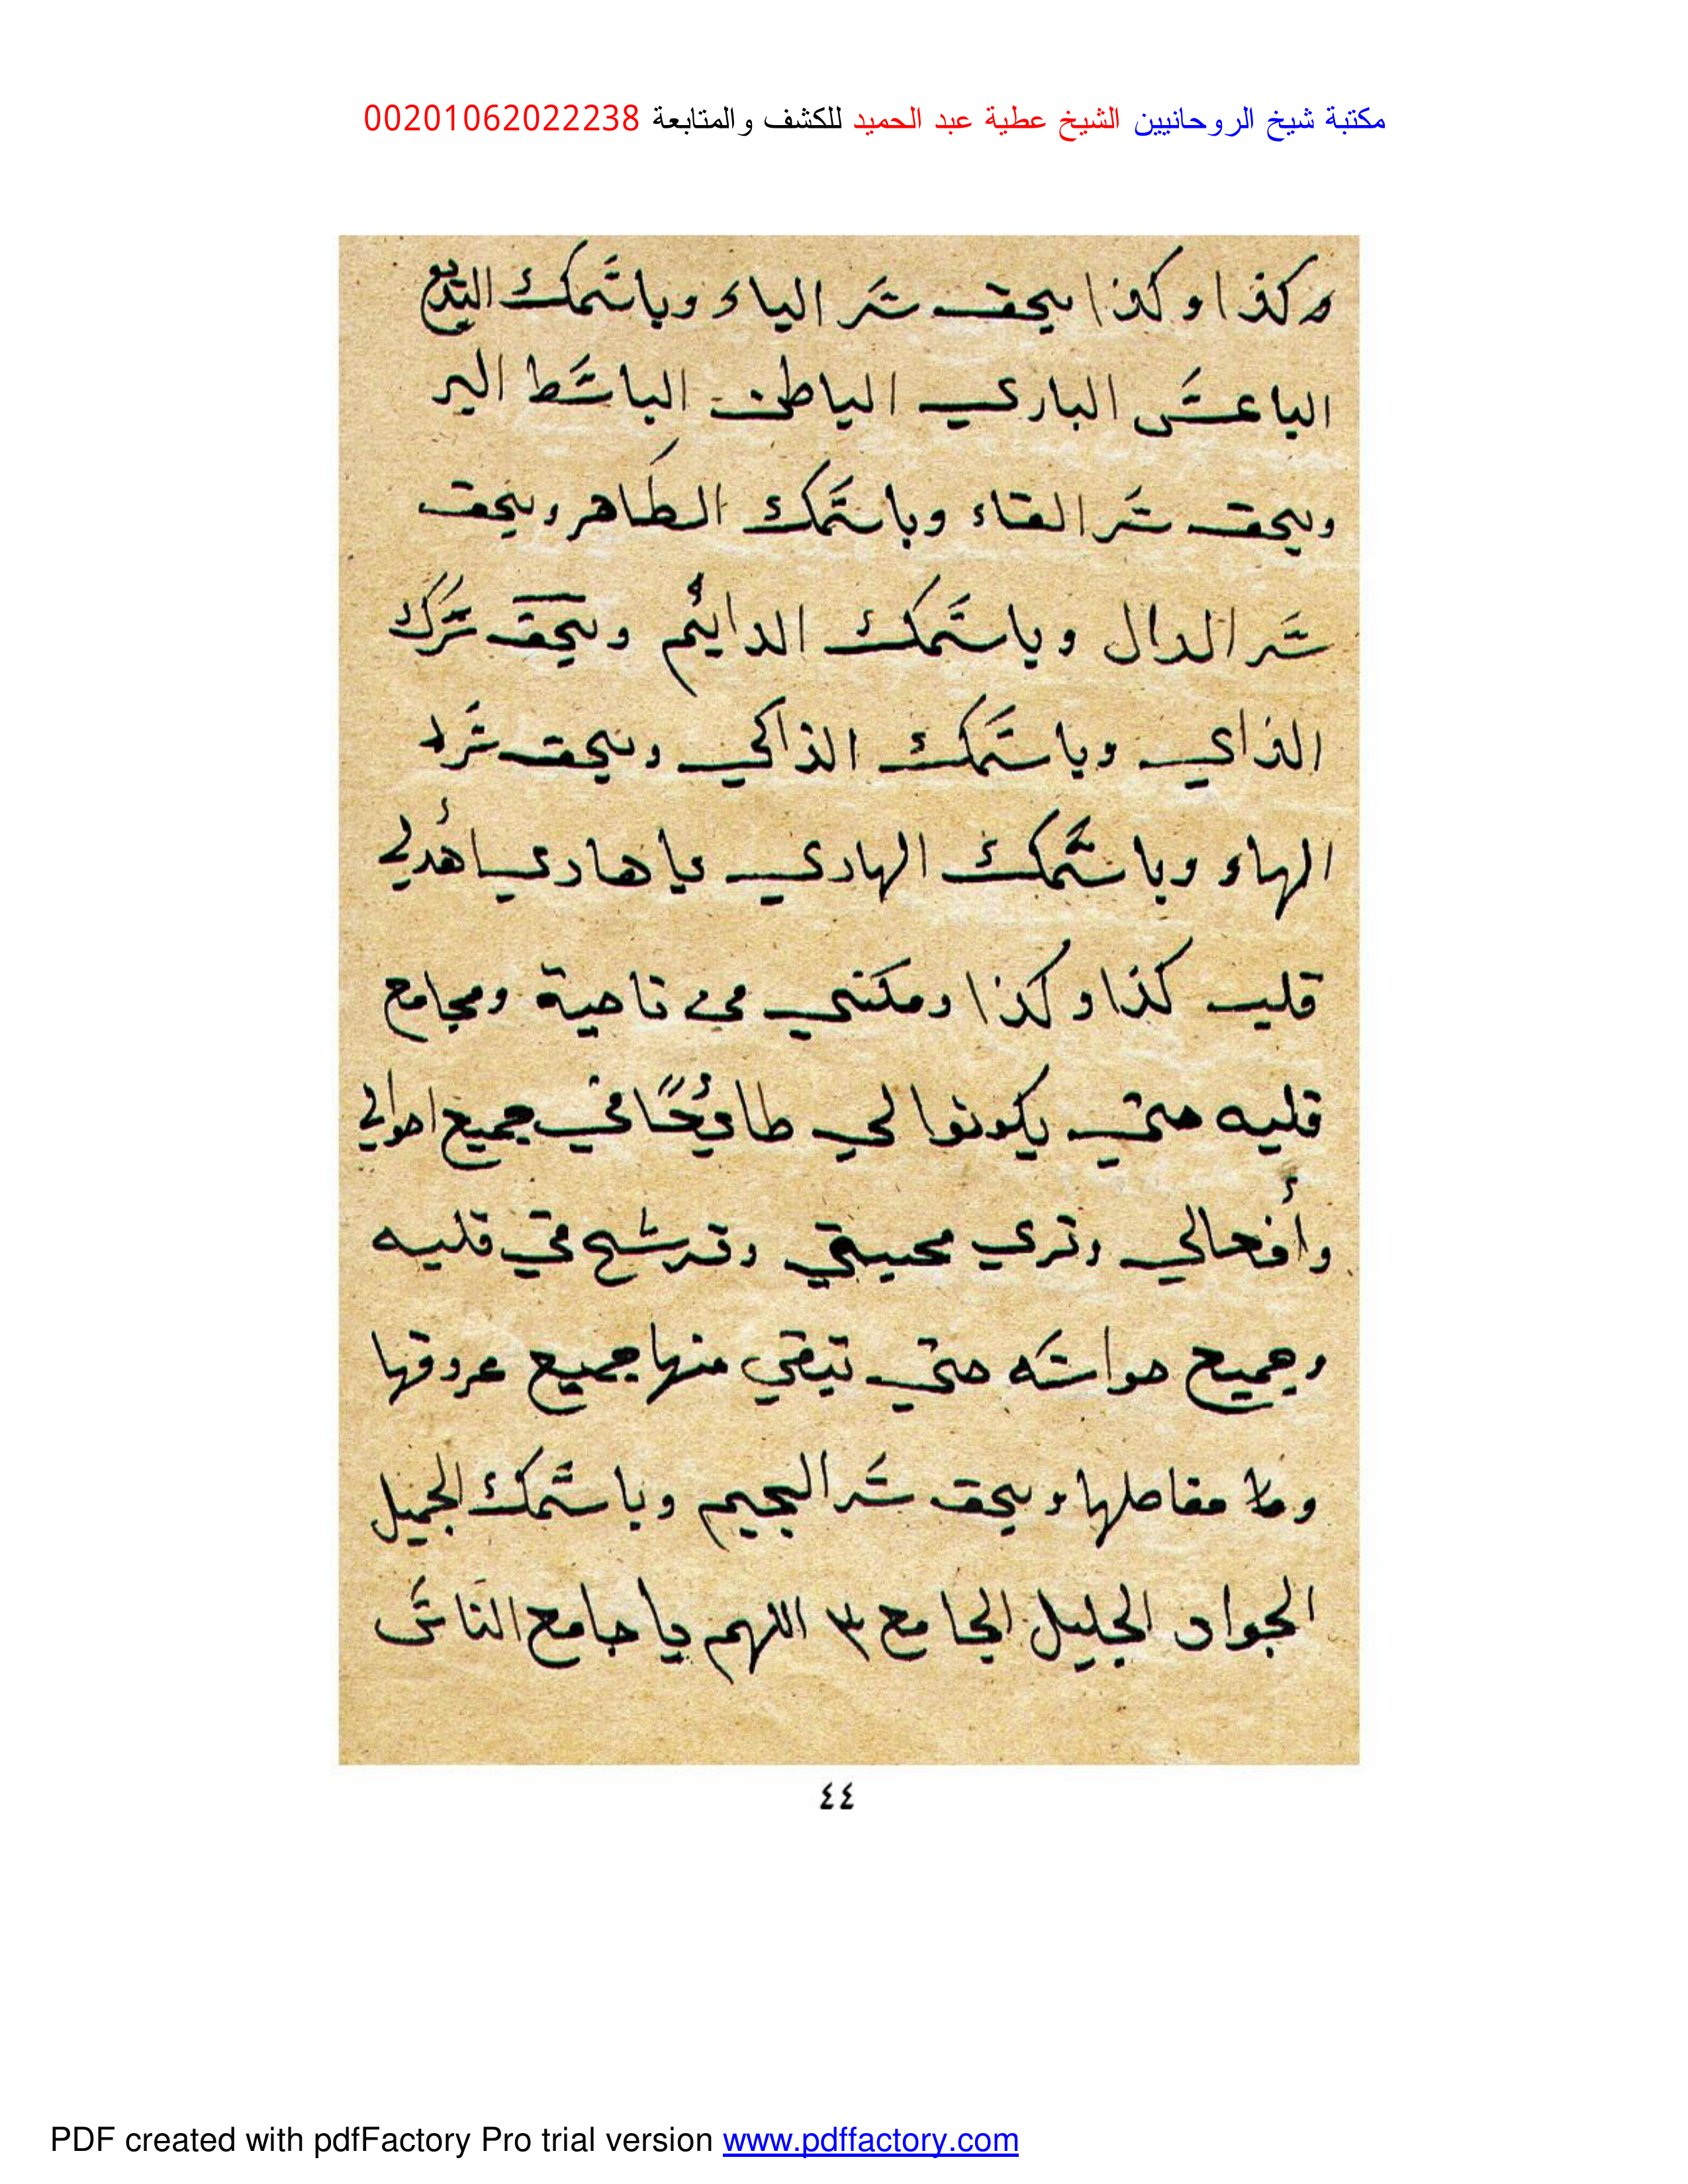 مكتبة شيخ الروحانيين الشيخ عطية عبد الحميد للكشف والمتابعة 00201062022238
وكذا وكذا بحق سر الباء وباسمك البديع
الباعس الباري الباطن الباسط البر
وبحق سر الطاء وباسمك الطاهر وبحق
سر الدال وباسمك الدائم وبحق سرك
الذاي وباسمك الذاكي وبحق سر
الهاء وباسمك الهادي يا هادي اهدلي
قلب كذا وكذا ومكنني من ناصية ومجامع
قلبه حتي يكونوا لي طائعًا في جميع احوالي
وأفعالي وتري محبتي وترسخ في قلبه
وجميع حواسه حتي تبقي منها جميع عروقها
ومفاصلها وبحق سر الجيم وباسمك الجميل
الجواد الجليل الجامع ٣ اللهم يا جامع الناس
٤٤
PDF created with pdfFactory Pro trial version www.pdffactory.com